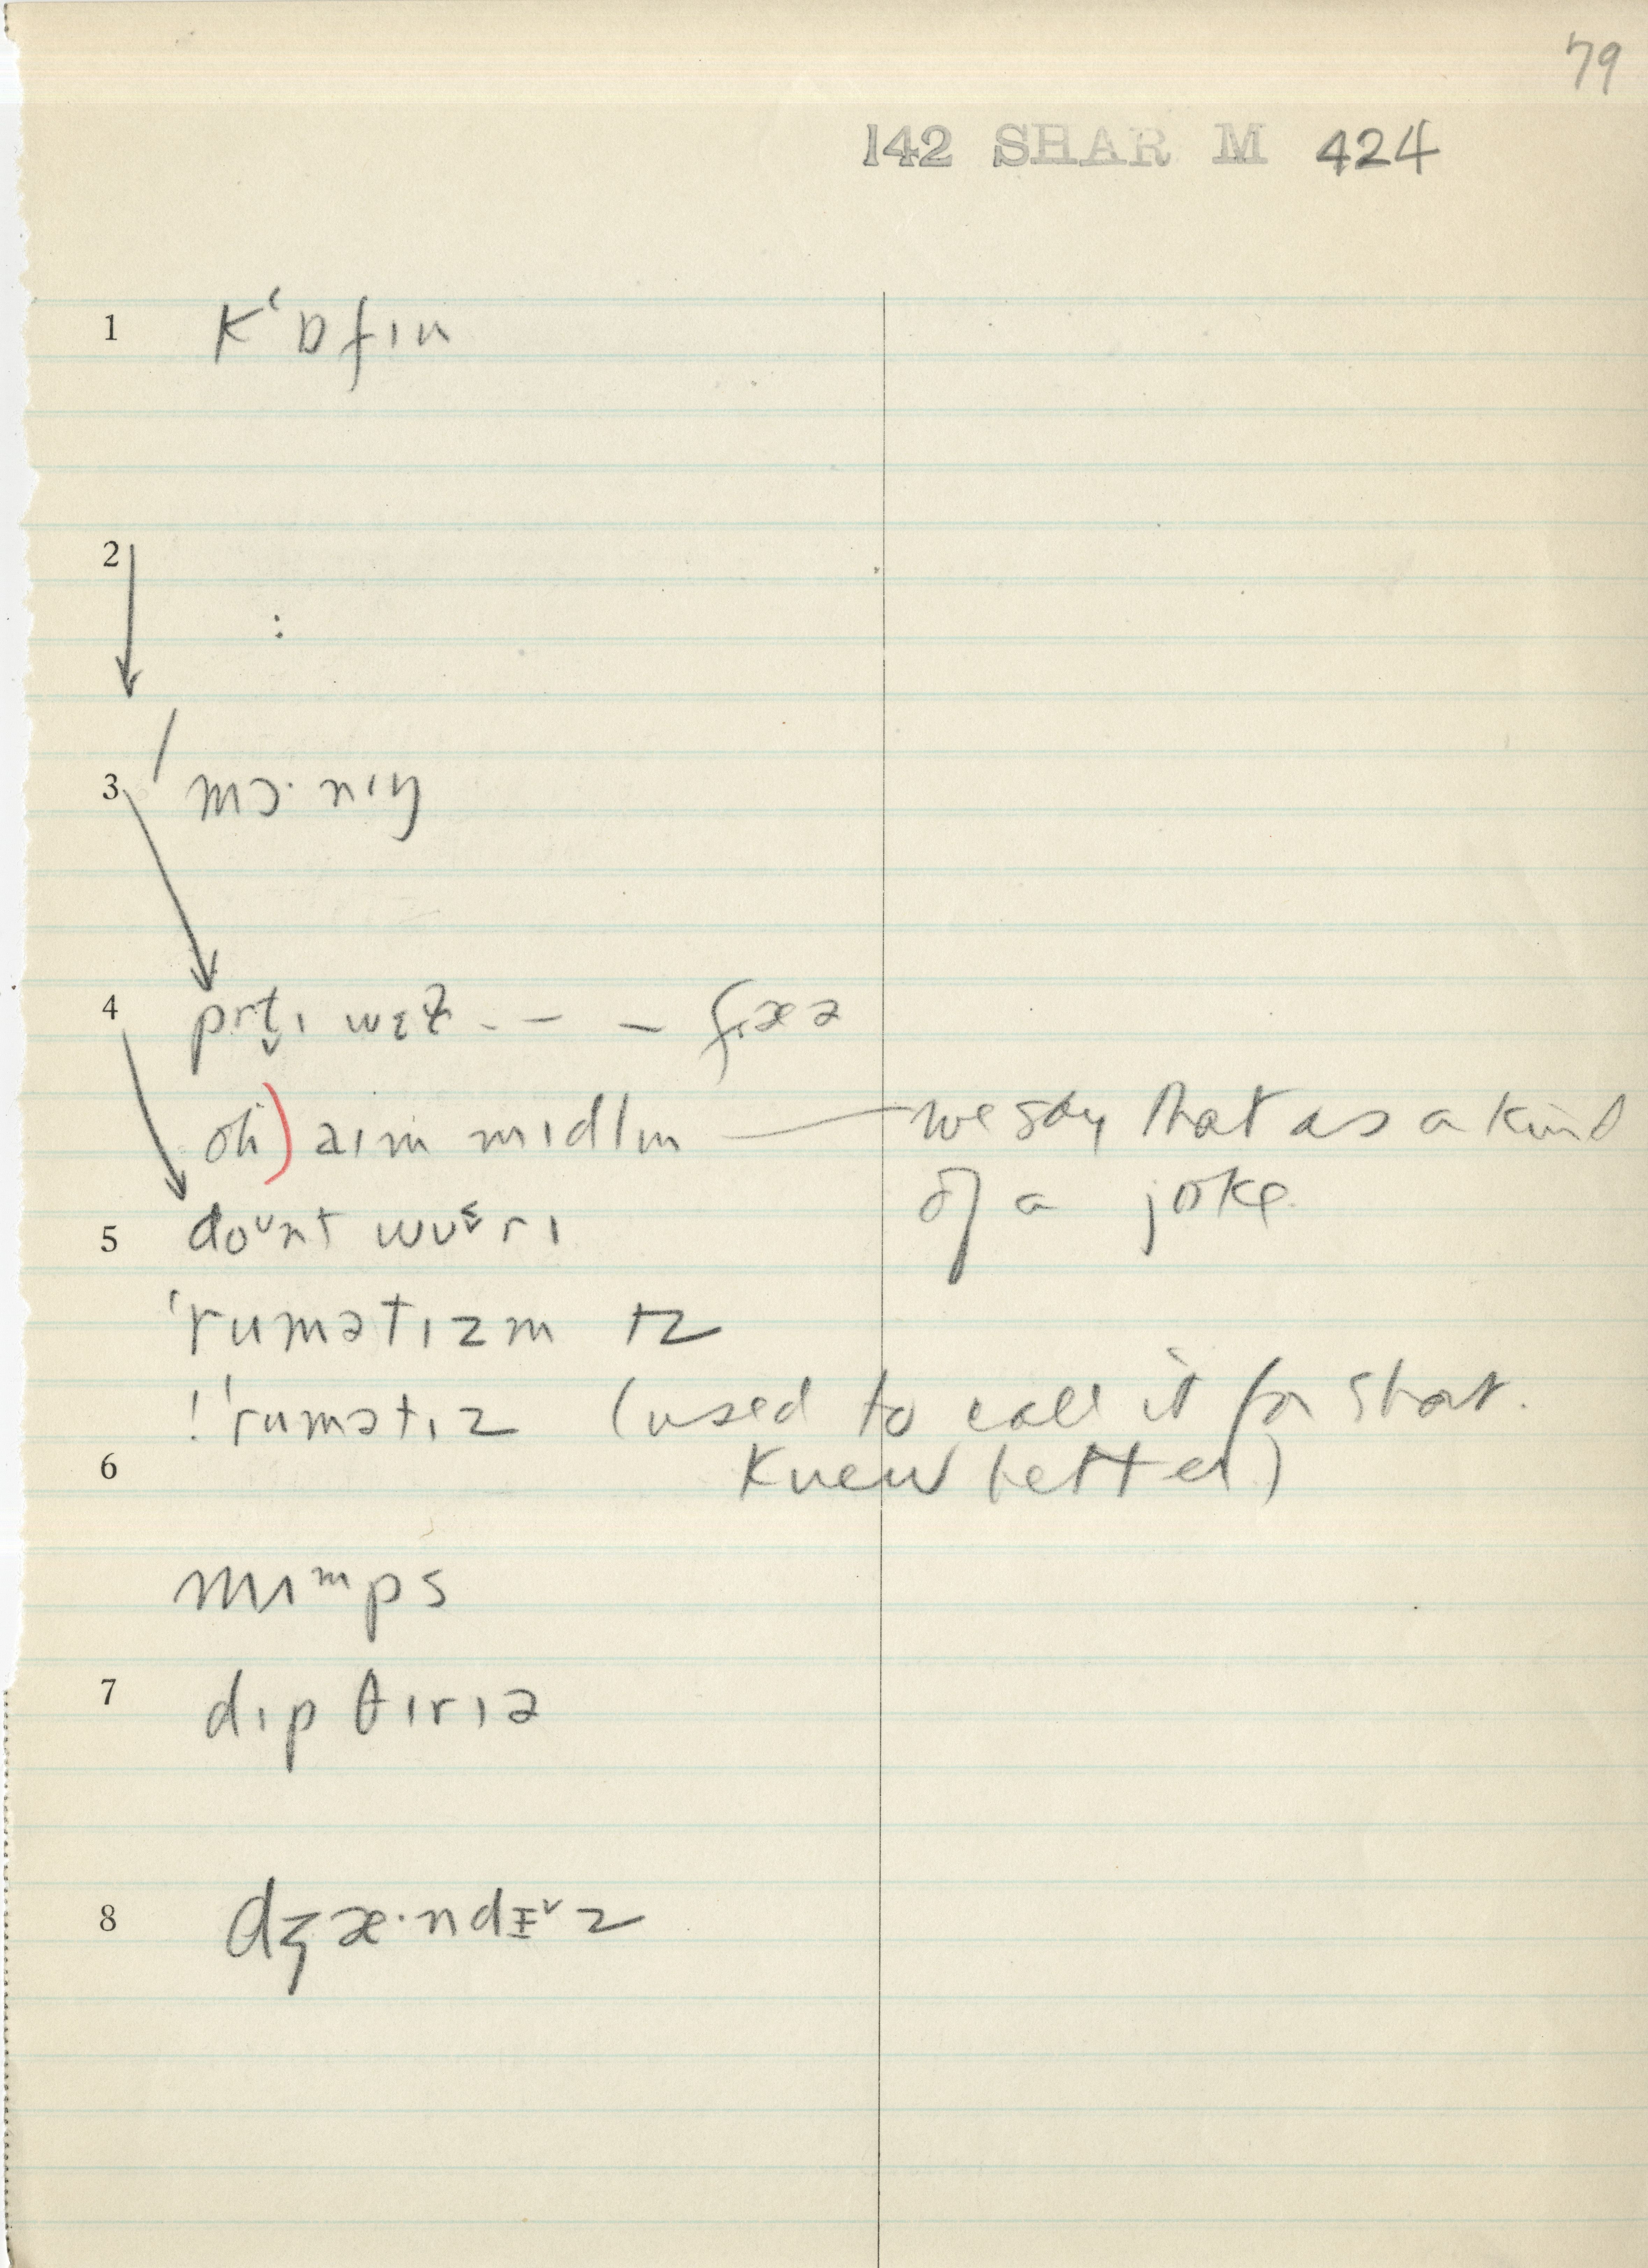 79
142 SHAR M 424
1 kʻɒfɪn
2
3 mɔ·nɪŋ
4 prt̬ɪ wɛɫ - - - fɪəz
oh) aɪm mɪdlɪn — we say that as a kind
of a joke.
5 doᵘnt wʊᵋrɪ
ˈrumətɪzm
!ˈrumətɪz (used to call it for short.
6 Knew better)
mɪᵐps
7 dɪpθɪrɪə
8 dʒæ·ndɪz